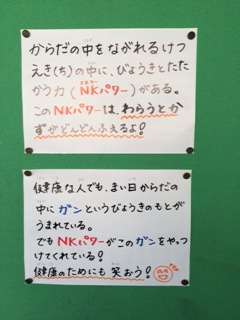 からだの中をながれるけつ
えき(ち)の中に、びょうきとたた
かう力(NKパワー)がある。
このNKパワーは、わらうとか
ずがどんどんふえるよ!
健康な人でも、まい日からだの
中にガンというびょうきのもとが
うまれている。
でもNKパワーがこのガンをやっつ
けてくれている!
健康のためにも笑おう!